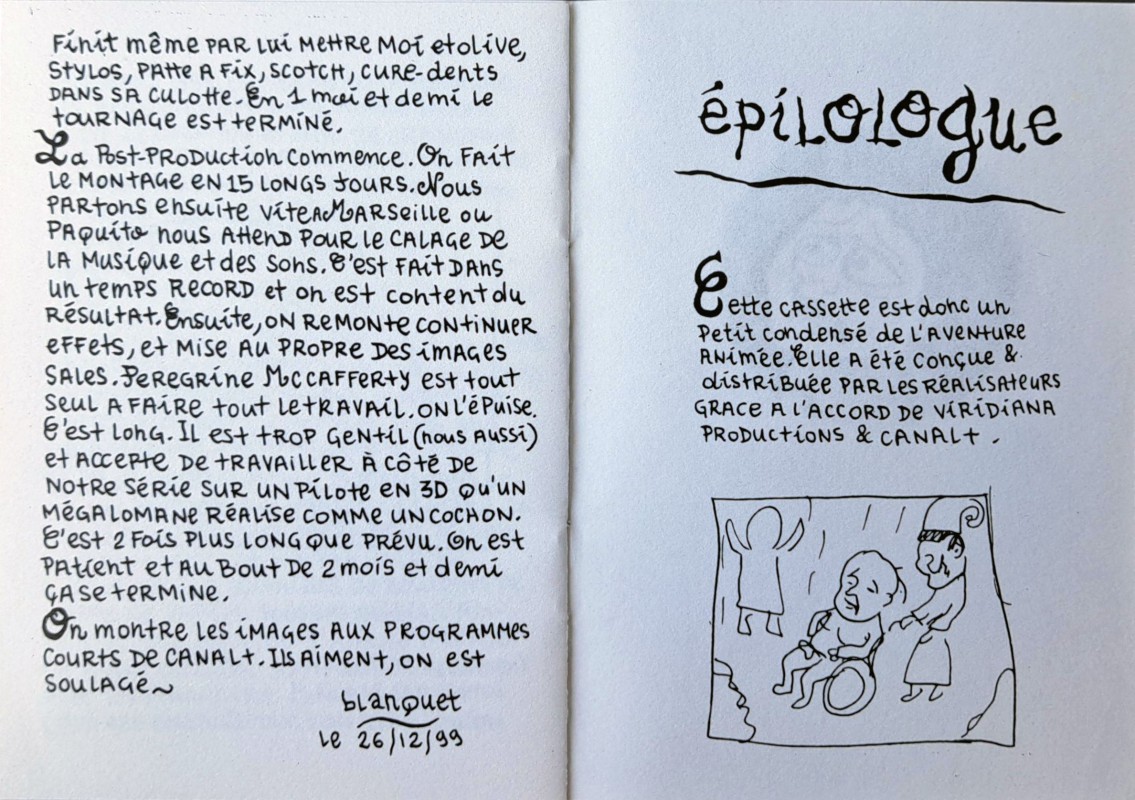 Finit même PAR Lui Mettre Moi et olive,
Stylos, PAtte A Fix, scotch, cure-dents
DANS SA culotte. En 1 moi et demi Le
tourNAGE est terMiNé.
La Post-Production commence. On FAit
Le MONTAGE EN 15 LONGS JOURS. Nous
PARtons ensuite vite A MARseille ou
PAquito nous AttenD Pour Le CALAGE DE
LA Musique et des sons. C'est FAit DAns
un temps RECORD et on est content du
RÉSULTAT. Ensuite, ON Remonte continuer
effets, et Mise Au PROPRE Des images
SALES. Peregrine MccAfferty est tout
Seul A FAire tout Le trAVAiL. ON L'éPuise.
C'est Long. IL est trop Gentil (nous Aussi)
et Accepte De trAVAiller À côté DE
NOTRE SÉRiE SUR UN Pilote EN 3D QU'UN
MÉGALOMANE RÉALise comme UN cochon.
C'est 2 Fois PLUS LONG Que PRévu. On est
PAtient et Au Bout De 2 mois et demi
çA se terMine.
On montre Les iMAGES AUX PROGRAMMes
Courts De CANAL+. ILs Aiment, on est
SOULAGÉ~
blanquet
Le 26/12/99
épiLOLOgue
Cette cAssette est donc un
Petit condensé de L'Aventure
ANiMée. Elle A été conçue &
distribuée PAR Les RéALisAteurs
GRACE A L'ACCORD DE VIRIDIANA
PRODUCTIONS & CANAL+ .